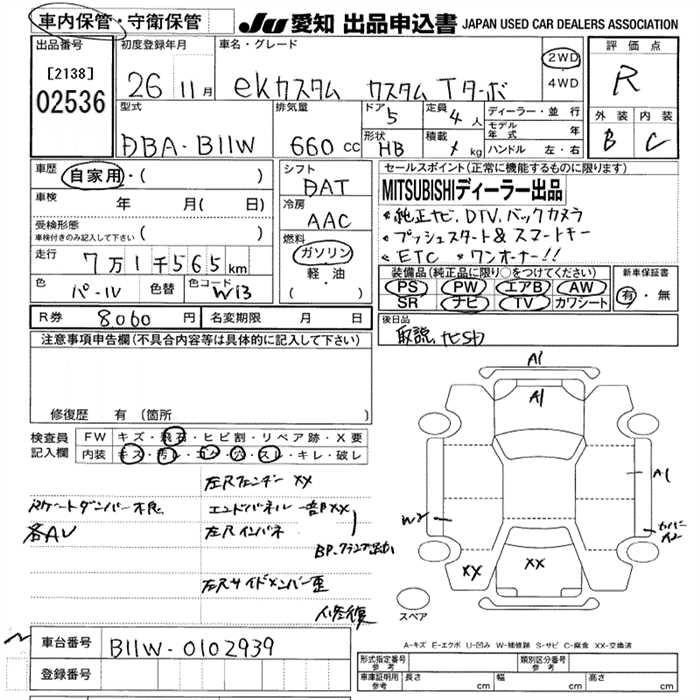 車内保管・守衛保管
JU 愛知 出品申込書 JAPAN USED CAR DEALERS ASSOCIATION
出品番号 [2138] 02536
初度登録年月 26 11月
車名・グレード ekカスタム カスタムTターボ
2WD・4WD
評価点 R
外装 B 内装 C
型式 DBA-B11W
排気量 660 cc
ドア 5 定員 4人
形状 HB 積載 kg
ディーラー・並行
モデル年式 年
ハンドル 左・右
車歴 自家用・( )
車検 年 月( 日)
受検形態 車検付きのみ記入して下さい ( )
走行 7万1千565km
色 パール 色替 色コード W13
シフト DAT
冷房 AAC
燃料 ガソリン 軽・油 ( )
セールスポイント(正常に機能するものに限ります)
MITSUBISHIディーラー出品
純正ナビ、DTV、バックカメラ
プッシュスタート&スマートキー
ETC ワンオーナー!!
装備品(純正品に限り○をつけてください)
PS PW エアB AW
SR ナビ TV カワシート
新車保証書 有・無
R券 8060円 名変期限 月 日
後日品
取説 ナビSD
注意事項申告欄(不具合内容等は具体的に記入して下さい)
修復歴 有(箇所 )
検査員記入欄
FW キズ・飛石・ヒビ割・リペア跡・X要
内装 キズ・汚レ・コゲ・穴・スレ・キレ・破レ
左Rフェンダー XX
スケートダンパー不良 エンドパネル一部XX
各AU 左Rインパネ
左Rサイドメンバー歪
修復
A1
A1
A1
W2
カバーA2
XX
XX
スペア
A-キズ E-エクボ U-凹み W-補修跡 S-サビ C-腐食 XX-交換済
車台番号 B11W-0102939
登録番号
形式指定番号 参考 類別区分番号 参考
車庫証明用 参考 長さ cm 幅 cm 高さ cm